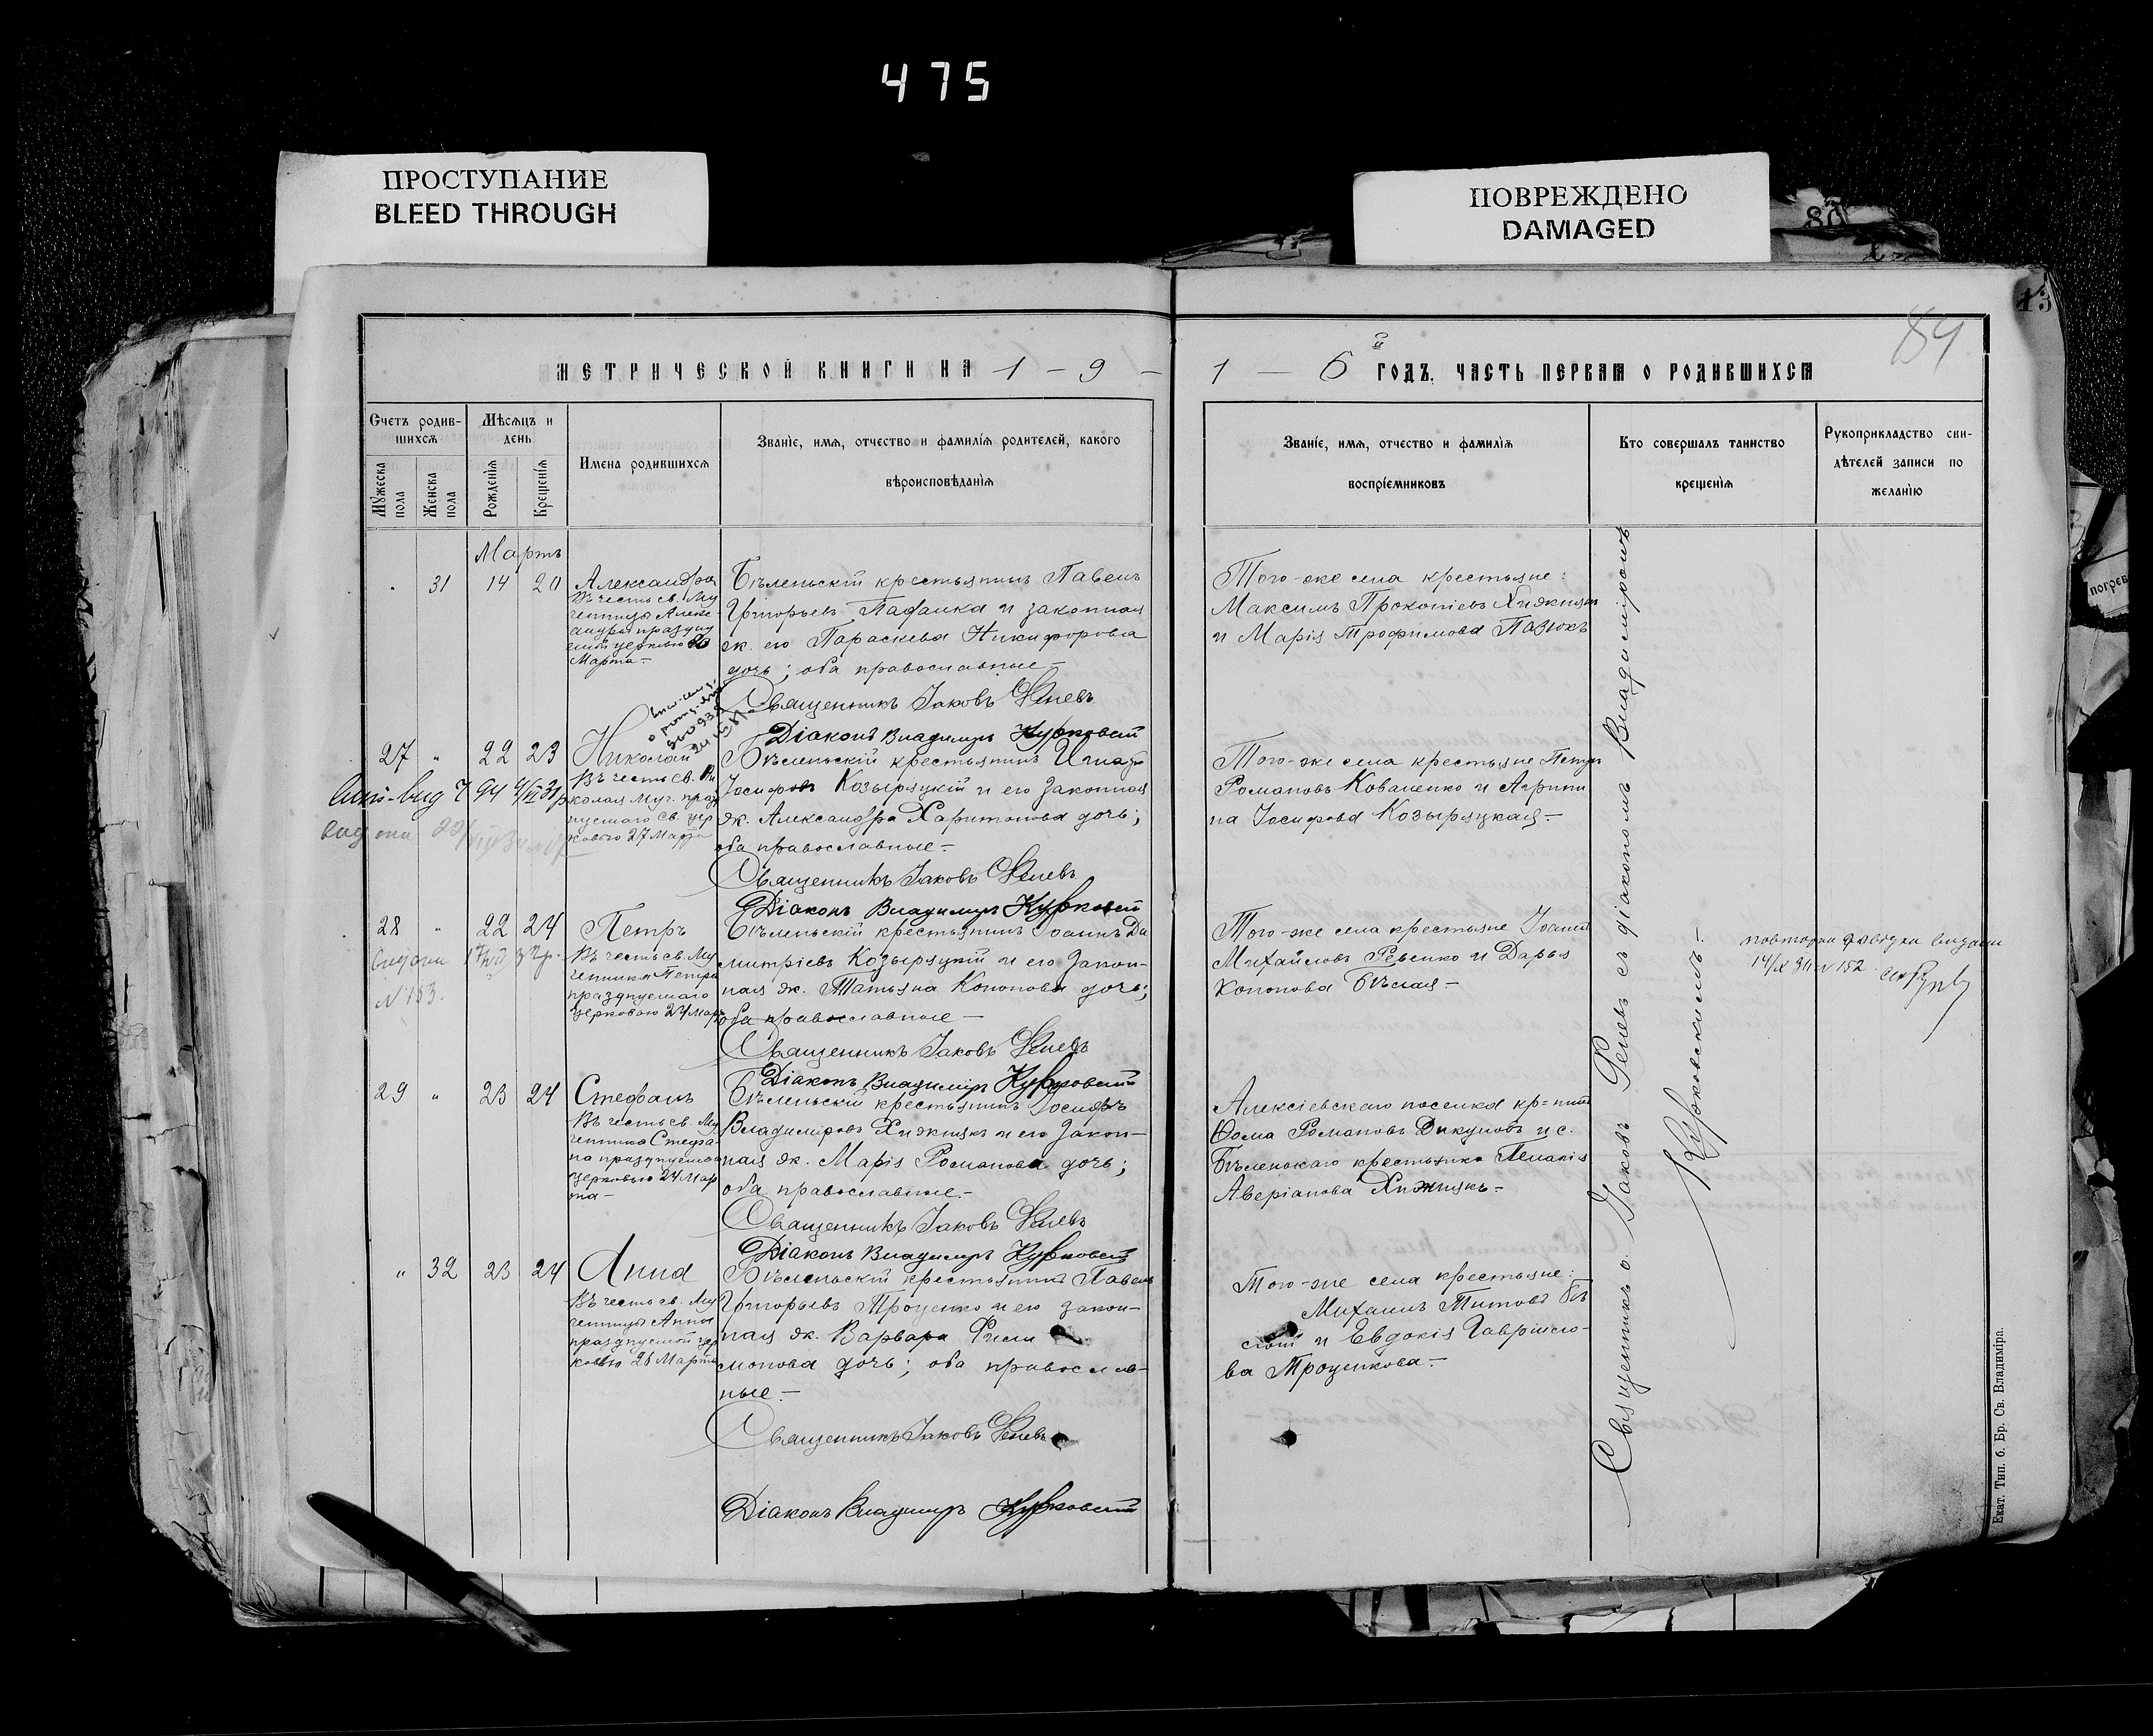 475
ПРОСТУПАНИЕ
BLEED THROUGH
ПОВРЕЖДЕНО
DAMAGED
80
13
84
МЕТРИЧЕСКОЙ КНИГИ НА 1 - 9 -
1 - 6 й ГОДЪ, ЧАСТЬ ПЕРВАЯ О РОДИВШИХСЯ
Счетъ родив-
шихся
Мужеска пола
Женска пола
Мѣсяцъ и
день
Рожденія
Крещенія
Имена родившихся
Званіе, имя, отчество и фамилія родителей, какого
вѣроисповѣданія
Званіе, имя, отчество и фамилія
воспріемниковъ
Кто совершалъ таинство
крещенія
Рукоприкладство сви-
дѣтелей записи по
желанію
Мартъ
31 14 20
Александра
Въ честь св. Му
ченицы Алекс
андры празднu
емой церковью 20
Марта
Бѣленьскій крестьянинъ Павелъ
Григорьевъ Паданка и законная
ж. его Параскева Никифорова
дочь; оба православные -
Священникъ Іаковъ Феневъ
Діаконъ Владиміръ Курковскій
Того-же села крестьяне:
Максимъ Прокопіевъ Хижнякъ
и Марія Трофимова Пазюкъ
27 " 22 23
Николай
Въ честь св. Ни
колая Муч. праз
днуемаго св. цер
ковью 27 Марта
Бѣленьскій крестьянинъ Игнатъ
Іосифовъ Козыряцкій и его законная
ж. Александра Харитонова дочь;
оба православные -
Священникъ Іаковъ Феневъ
Діаконъ Владиміръ Курковскій
Того-же села крестьяне Петръ
Романовъ Коваленко и Агрипи
на Іосифова Козыряцкая -
28 " 22 24
Петръ
№ 153.
Въ честь св. Му
ченика Петра
празднуемаго
церковью 24 Марта
Бѣленьскій крестьянинъ Іоаннъ Ди
митріевъ Козыряцкій и его закон-
ная ж. Татьяна Кононова дочь;
оба православные -
Священникъ Іаковъ Феневъ
Діаконъ Владиміръ Курковскій
Того-же села крестьяне Іоаннъ
Михайловъ Ревенко и Дарья
Кононова Бѣлая -
14/X 31 № 152
29 " 23 24
Стефанъ
Въ честь св. Му
ченика Стефа-
на празднуемаго
церковью 24 Мар
та -
Бѣленьскій крестьянинъ Іосифъ
Владиміровъ Хижнякъ и его закон-
ная ж. Марія Романова дочь;
оба православные. -
Священникъ Іаковъ Феневъ
Діаконъ Владиміръ Курковскій
Алексіевскаго поселка кр=нинъ
Фома Романовъ Дикуновъ и с.
Бѣленькаго крестьянка Пелагія
Аверіанова Хижнякъ -
" 32 23 24
Анна
Въ честь св. Му
ченицы Анны
празднуемой цер
ковью 26 Марта
Бѣленьскій крестьянинъ Павелъ
Григорьевъ Троценко и его закон-
ная ж. Варвара Фили
монова дочь; оба православ-
ные. -
Священникъ Іаковъ Феневъ
Діаконъ Владиміръ Курковскій
Того-же села крестьяне:
Михаилъ Титовъ Бѣ
лый и Евдокія Гавріило-
ва Троценкова. -
Священникъ о. Іаковъ Феневъ съ діакономъ Владиміромъ
Курковскимъ. -
Екат. Тип. б. Бр. Св. Владиміра.
погреб